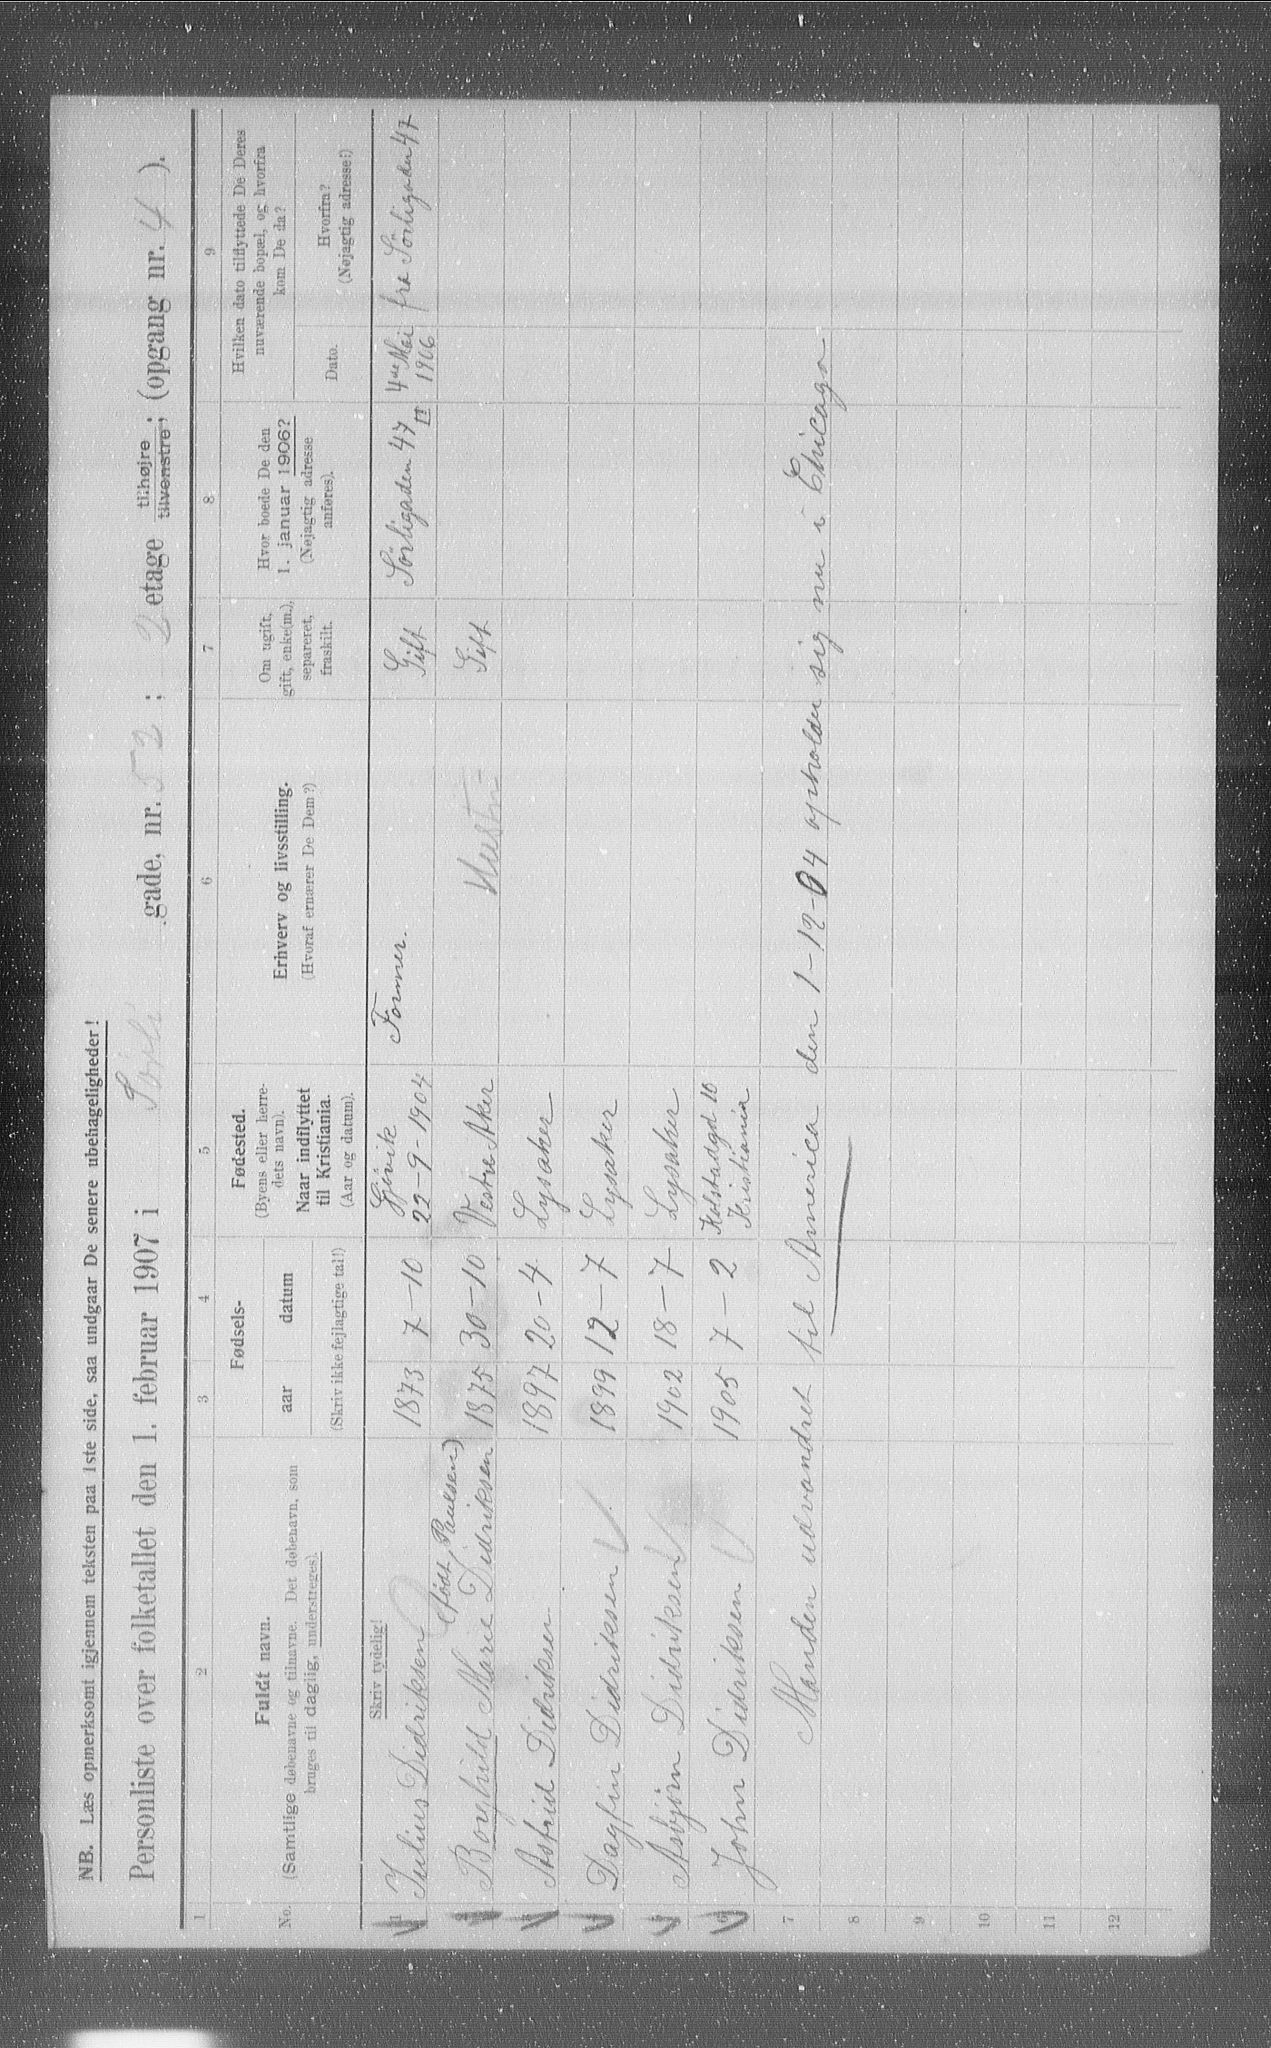 NB. Læs opmerksomt igjennem teksten paa 1ste side, saa undgaar De senere ubehageligheder!
Personliste over folketallet den 1. februar 1907 i Sörli gade, nr. 52 ; 2 etage tilhøjre ; tilvenstre ; (opgang nr. 4 ).
1 2 3 4 5 6 7 8 9
No.
Fuldt navn.
(Samtlige døbenavne og tilnavne. Det døbenavn, som
bruges til daglig, understreges).
Fødsels-
aar datum
(Skriv ikke fejlagtige tal!)
Fødested.
(Byens eller herre-
dets navn).
Naar indflyttet
til Kristiania.
(Aar og datum).
Erhverv og livsstilling.
(Hvoraf ernærer De Dem?)
Om ugift,
gift, enke(m.),
separeret,
fraskilt.
Hvor boede De den
1. januar 1906?
(Nøjagtig adresse
anføres).
Hvilken dato tilflyttede De Deres
nuværende bopæl, og hvorfra
kom De da?
Dato.
Hvorfra?
(Nøjagtig adresse!)
Skriv tydelig!
1 Julius Didriksen 1873 7-10 Gjövik 22-9-1904 Former. Gift Sörligaden 47 II 4de Mai 1906 fra Sörligaden 47
(født Paulsen)
2 Borghild Marie Didriksen 1875 30-10 Vestre Aker Hustru Gift
3 Astrid Didriksen 1897 20-4 Lysaker
4 Dagfin Didriksen 1899 12-7 Lysaker
5 Asbjørn Didriksen 1902 18-7 Lysaker
6 John Didriksen 1905 7-2 Kolstadgd 10 Kristiania
7 Manden udvandret til America den 1-12-04 opholder sig nu i Chicago
8
9
10
11
12